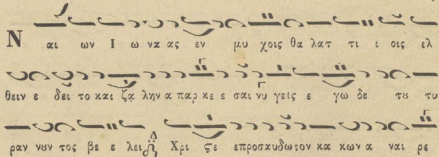 Ναι ων Ι ω να ας εν μυ χοις θα λατ τι ι οις ελ
θειν ε δει το και ζα λην α παρ κε ε σαι νυ γεις ε γω δε του τυ
ραν νουν τος βε ε λει Χρι ϛε ε προσ αυ δω τον κα κων α ναι ρε